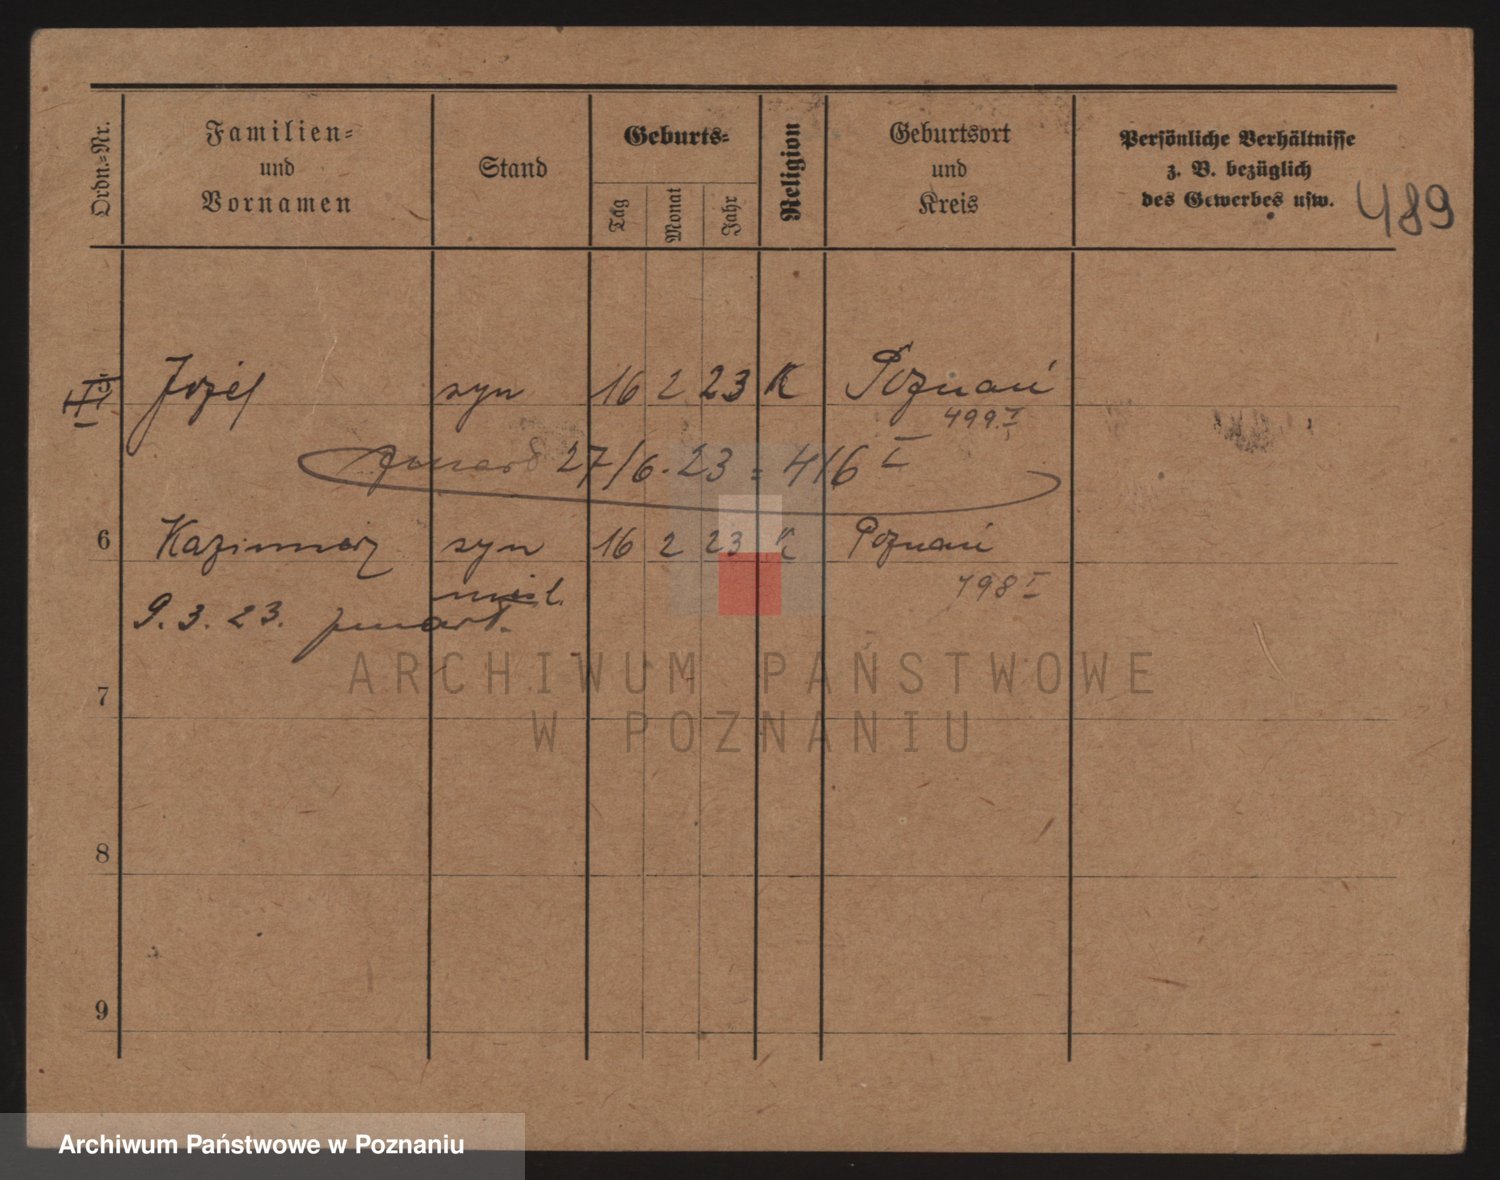 Ordn.=Nr.
Familien=
und
Vornamen
Stand
Geburts=
Tag
Monat
Jahr
Religion
Geburtsort
und
Kreis
Persönliche Verhältnisse
z. B. bezüglich
des Gewerbes usw.
489
5 Józef syn 16 2 23 K Poznań
499.I
27/6.23 = 416 I
6 Kazimierz syn 16 2 23 K Poznań
498 I
nieśl.
9.3.23. zmarł.
7
8
9
ARCHIWUM PAŃSTWOWE
W POZNANIU
Archiwum Państwowe w Poznaniu